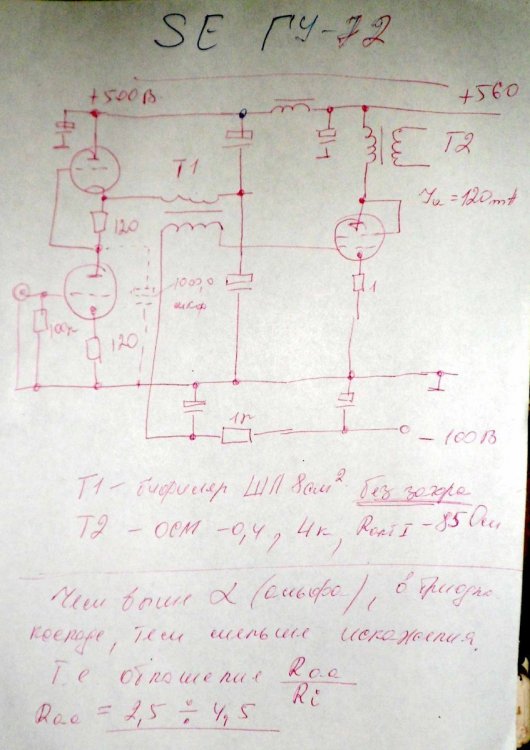 SE ГУ-72
+500В
+560
T1
T2
Ja = 120mA
120
1
1000,0
мкф
100к
120
1к
- 100В
T1 - бифиляр ШЛ 8см² без зазора
T2 - ОСМ - 0,4, 4к, Rакт I - 85 Ом
Чем выше α (альфа), в триодно
каскаде, тем меньше искажения.
Т.е отношение Raa
Ri
Raa = 2,5 ÷ 4,5